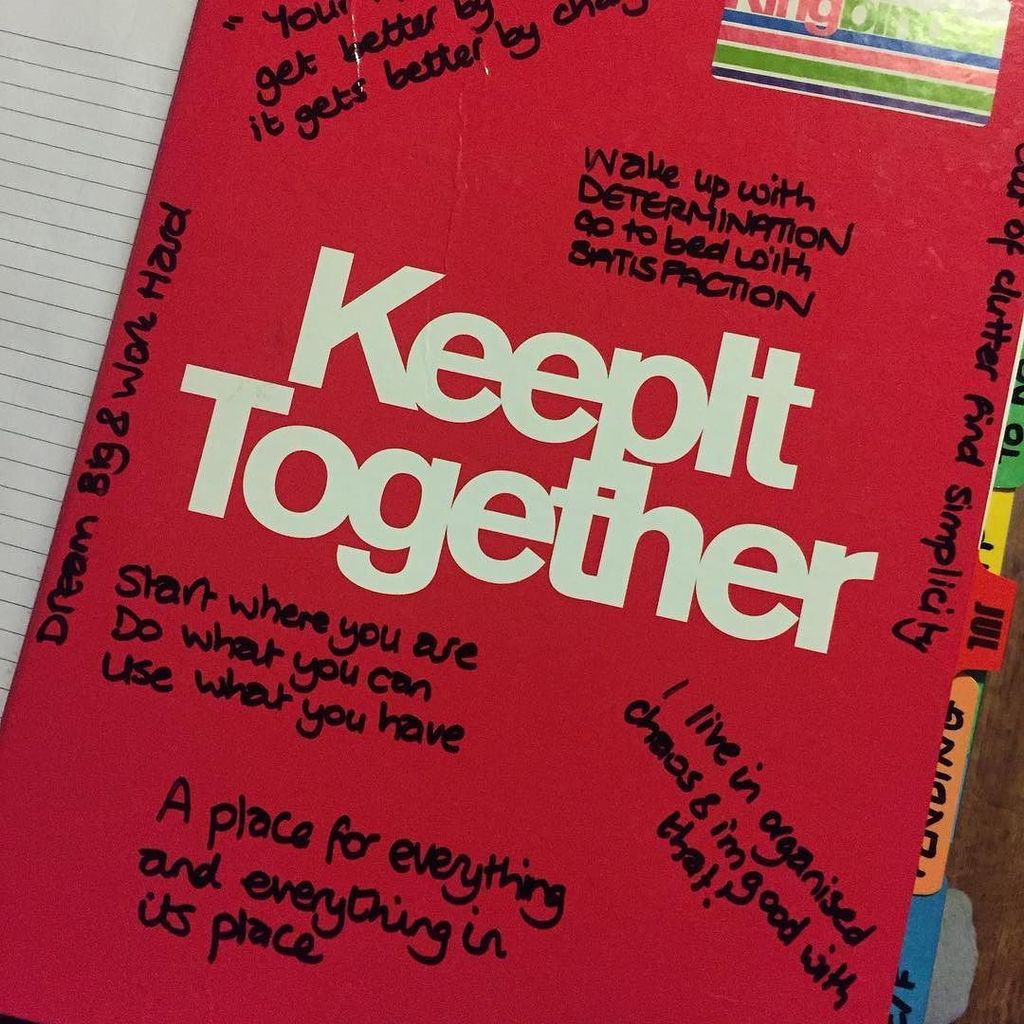 " Your
get better by
it gets better by
Wake up with
DETERMINATION
Go to bed with
SATISFACTION
KeepIt
Together
Dream Big & Work Hard
out of clutter find simplicity
Start where you are
Do what you can
Use what you have
I live in organised
chaos & i'm good with
that!
A place for everything
and everything in
its place
JUL